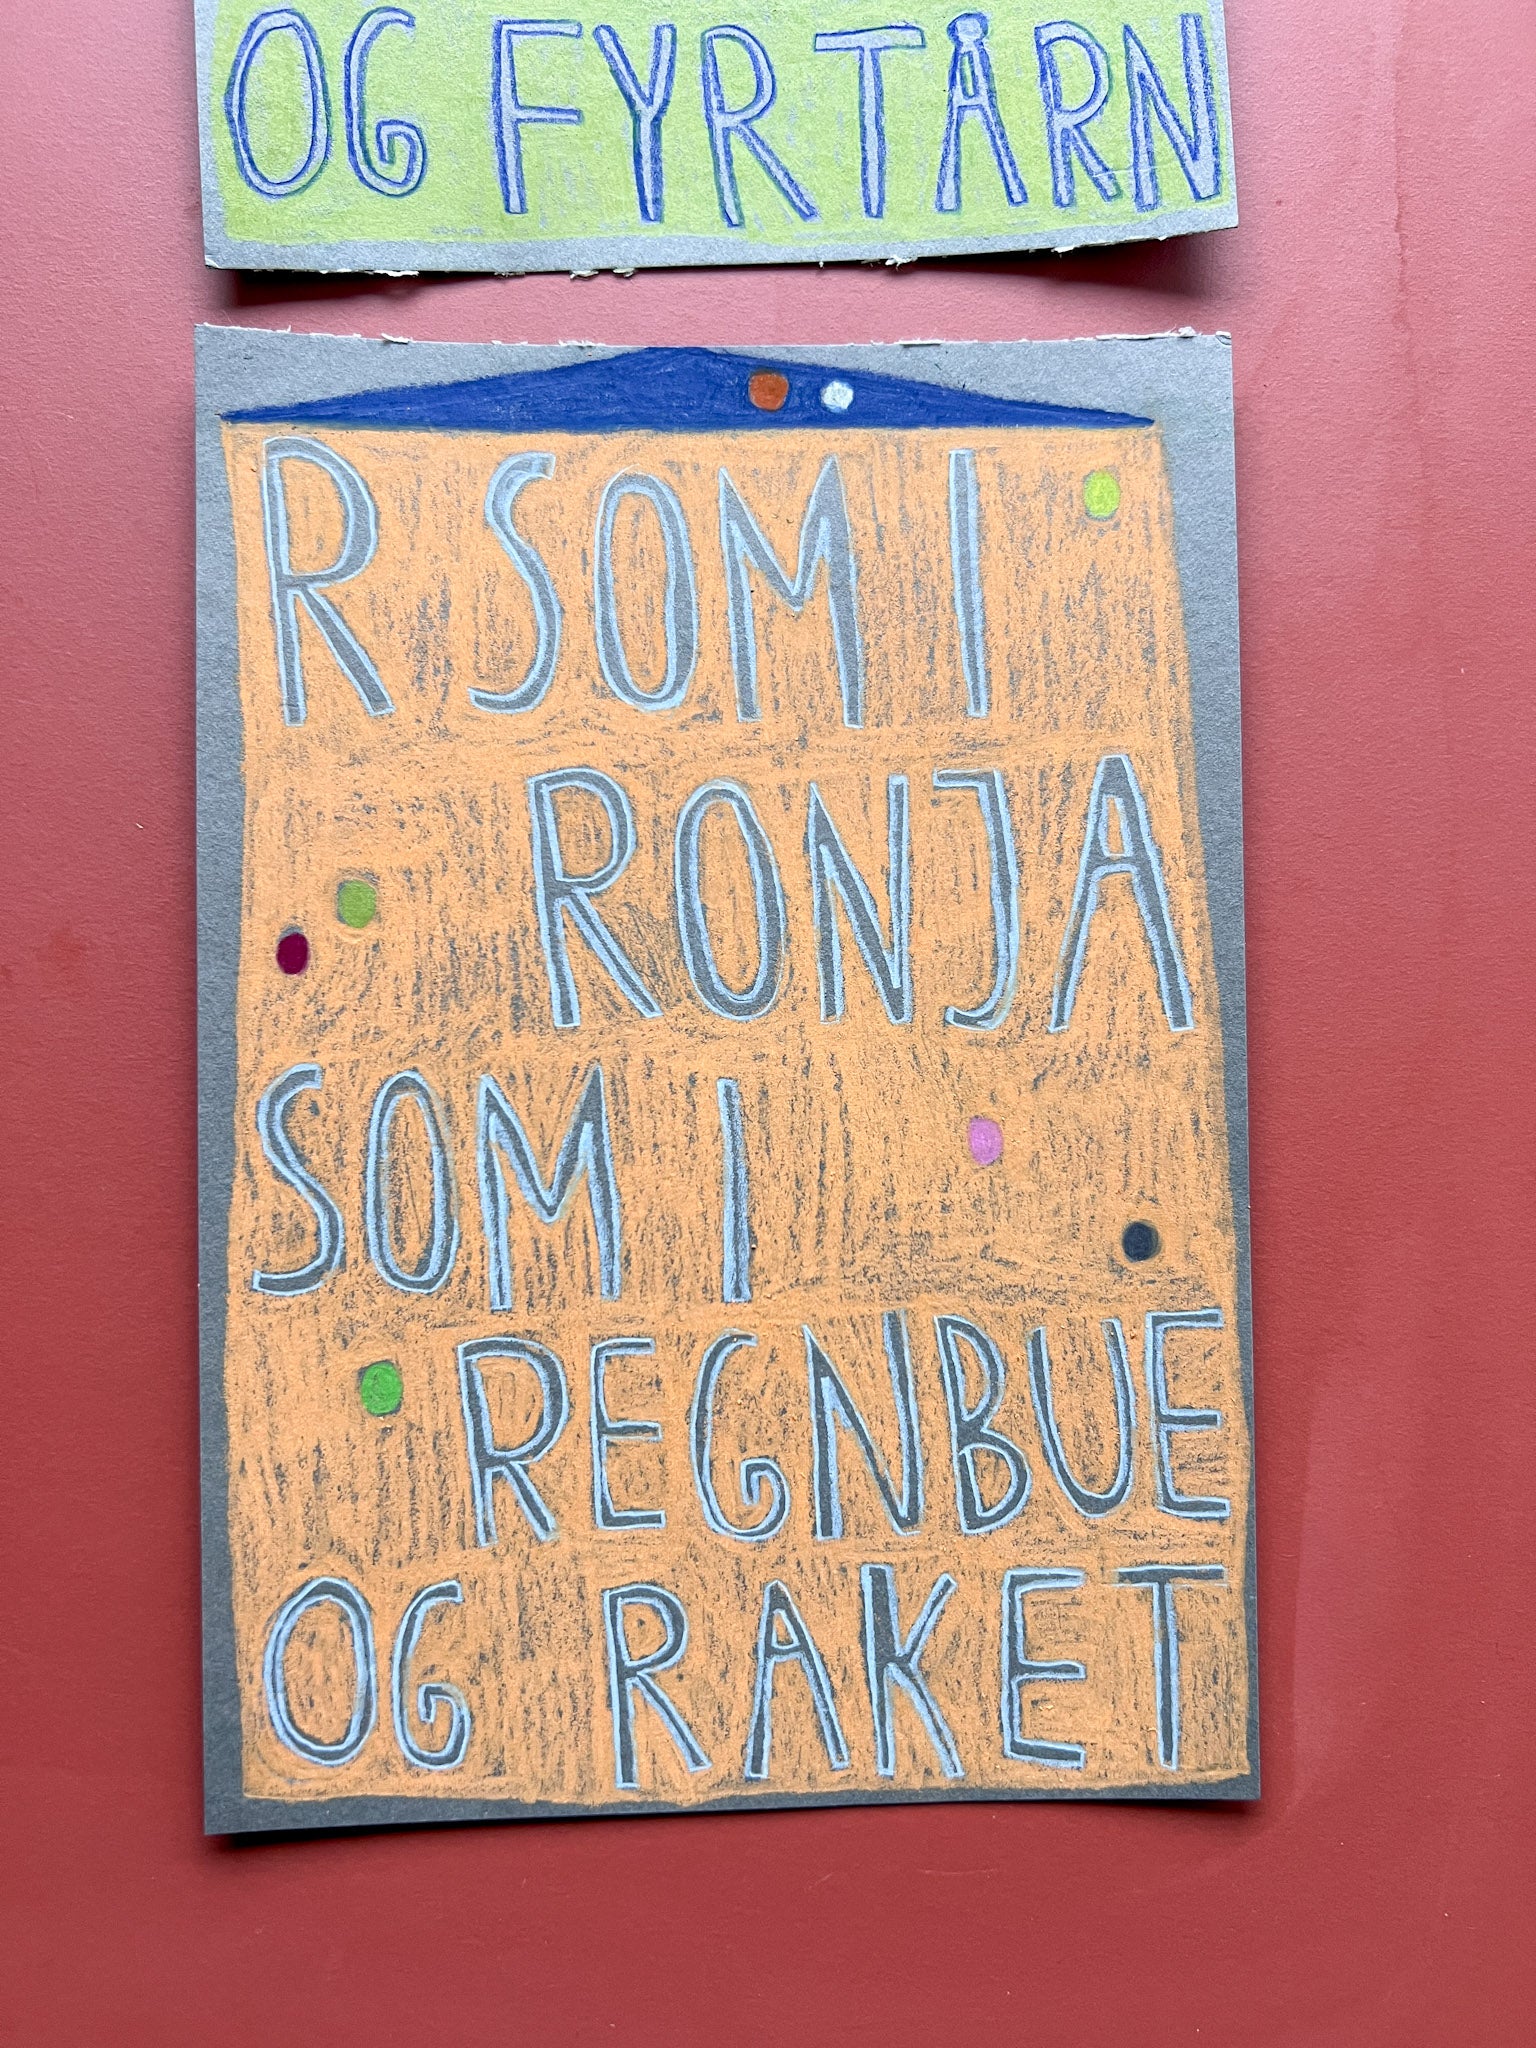 OG FYRTÅRN
R SOM I
RONJA
SOM I
REGNBUE
OG RAKET